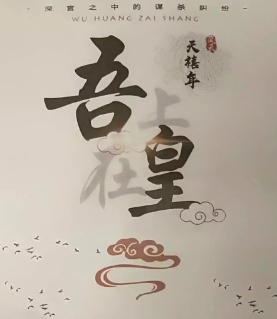 深宫之中的谋杀纠纷
WU HUANG ZAI SHANG
天禧年
吾皇
在上